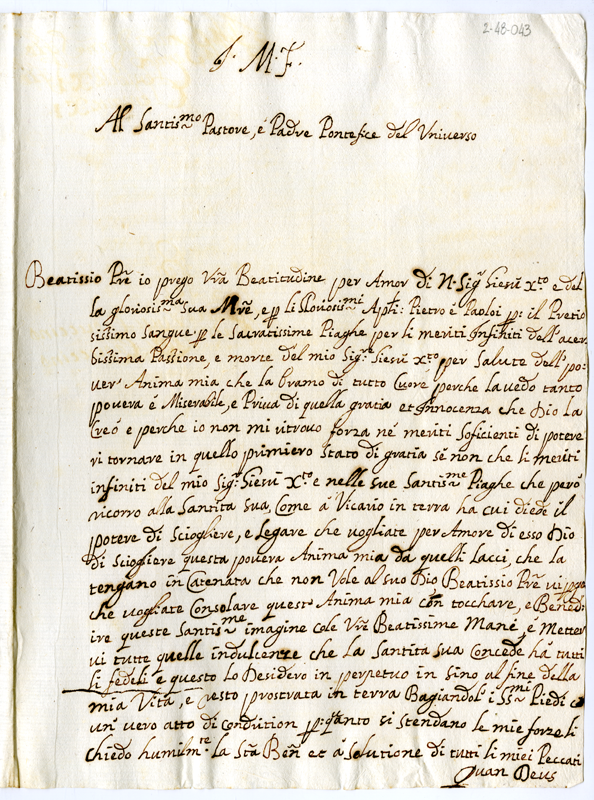 2-48-043
J. M. F.
Al Santis.mo Pastore, é Padre Pontefice del Universo
Beatissio Prē io prego Vrā Beatitudine per Amor di N. Sig.r Giesù Xto e del
la gloriosis.ma sua Mrē, e p li Gloriosis.mi Apti: Pietro é Paoloi p: il Pretio
sissimo Sangue p le Sacratissime Piaghe per li meriti Infiniti dell'acer
bissima Passione, e morte del mio Sig.re Giesù Xto per Salute dell'po:
ver' Anima mia che la Bramo di tutto Cuore perche la vedo tanto
povera é Miserabile, e Priva di quella gratia et Innocenza che Dio la
Creó e perche io non mi ritrovo forza né meriti soficienti di potere
ri tornare in quello primiero stato di gratia sé non che li meriti
infiniti del mio Sig.r Giesù Xto e nelle sue Santis.me Piaghe che però
ricorro alla Santita sua, Come á Vicario in terra ha cui diede il
potere di Sciogliere, e Legare che vogliate per Amore di esso Dio
di Sciogliere questa povera Anima mia da quelli Lacci, che la
tengano in Catenata che non Vole al suo Dio Beatissio Prē vi
che vogliate Consolare quest' Anima mia con tocchare, e Bened
ire queste Santis.me imagine cole Vrē Beatissime Mane, é Metter
vi tutte quelle indulcenze che la Santita sua Concede ha tutti
li fedeli e questo lo Desidero in perpetuo in sino al fine della
mia Vita, e questo prostrata in terra Bagiandoli i SS.mi Piedi
un' vero atto di p: quanto si stendano le mie forze li
chiedo humilm.te la Sta Ben et á solutione di tutti li miei Peccati
Quan Deus